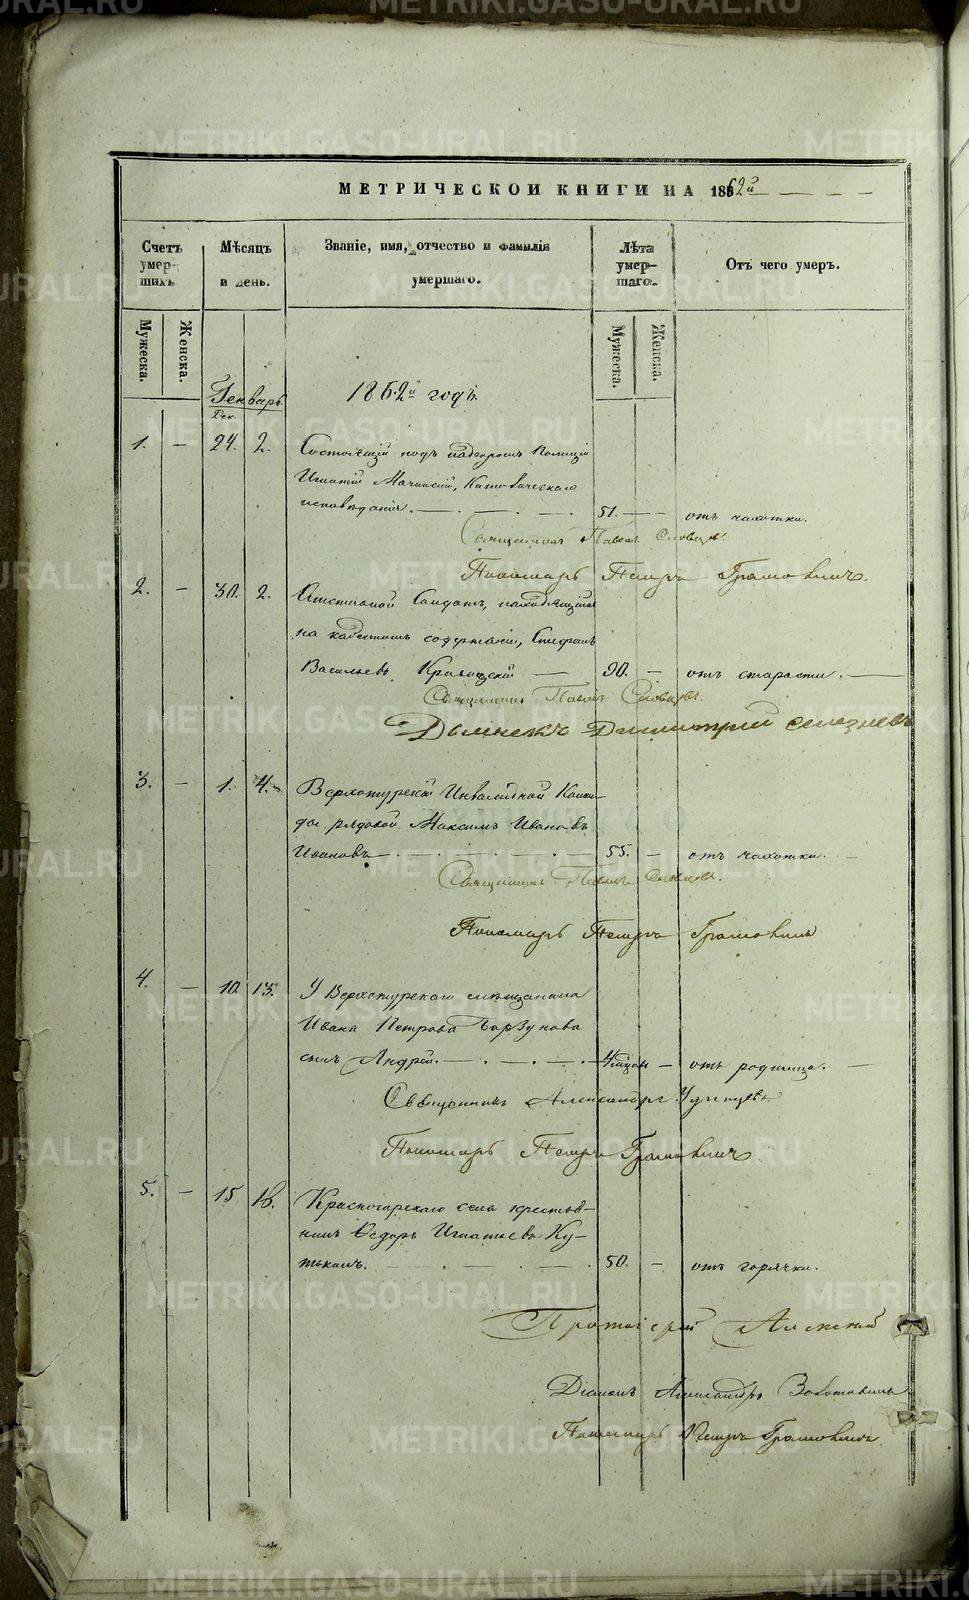 МЕТРИЧЕСКОЙ КНИГИ НА 1862й
Счетъ умер-шихъ
Мѣсяцъ и день.
Званіе, имя, отчество и фамилія умершаго.
Лѣта умер-шаго.
Отъ чего умеръ.
Мужеска.
Женска.
Мужеска.
Женска.
Генварь
Дек.
1862й годъ.
1. — 24. 2. Состоящій подъ надзоромъ Полиціи
Игнатій, Католическаго
исповѣданія. 51. — отъ чахотки.
Священникъ Павелъ Словцовъ.
Пономарь Петръ Грамовичъ.
2. — 30. 2. Отставной Солдатъ, находящійся
на казенномъ содержаніи, Стефанъ
Васильевъ 90. — отъ старости.
Священникъ Павелъ Словцовъ.
Дьячекъ Димитрій Селезневъ
3. — 1. 4. Верхотурской Инвалидной Коман-
ды рядовой Максимъ Ивановъ
Ивановъ 55. — отъ чахотки.
Священникъ Павелъ Словцовъ.
Пономарь Петръ Грамовичъ
4. — 10. 13. У Верхотурскаго мѣщанина
Ивана Петрова
сынъ Андрей. — отъ родимца.
Священникъ Александръ Удинцевъ
Пономарь Петръ Грамовичъ
5. — 15 18. Красногорскаго села крестья-
нинъ Ѳедоръ Игнатьевъ Ку-
тькинъ. 50. — отъ горячки.
Протоіерей
Діаконъ Александръ
Пономарь Петръ Грамовичъ
METRIKI.GASO-URAL.RU